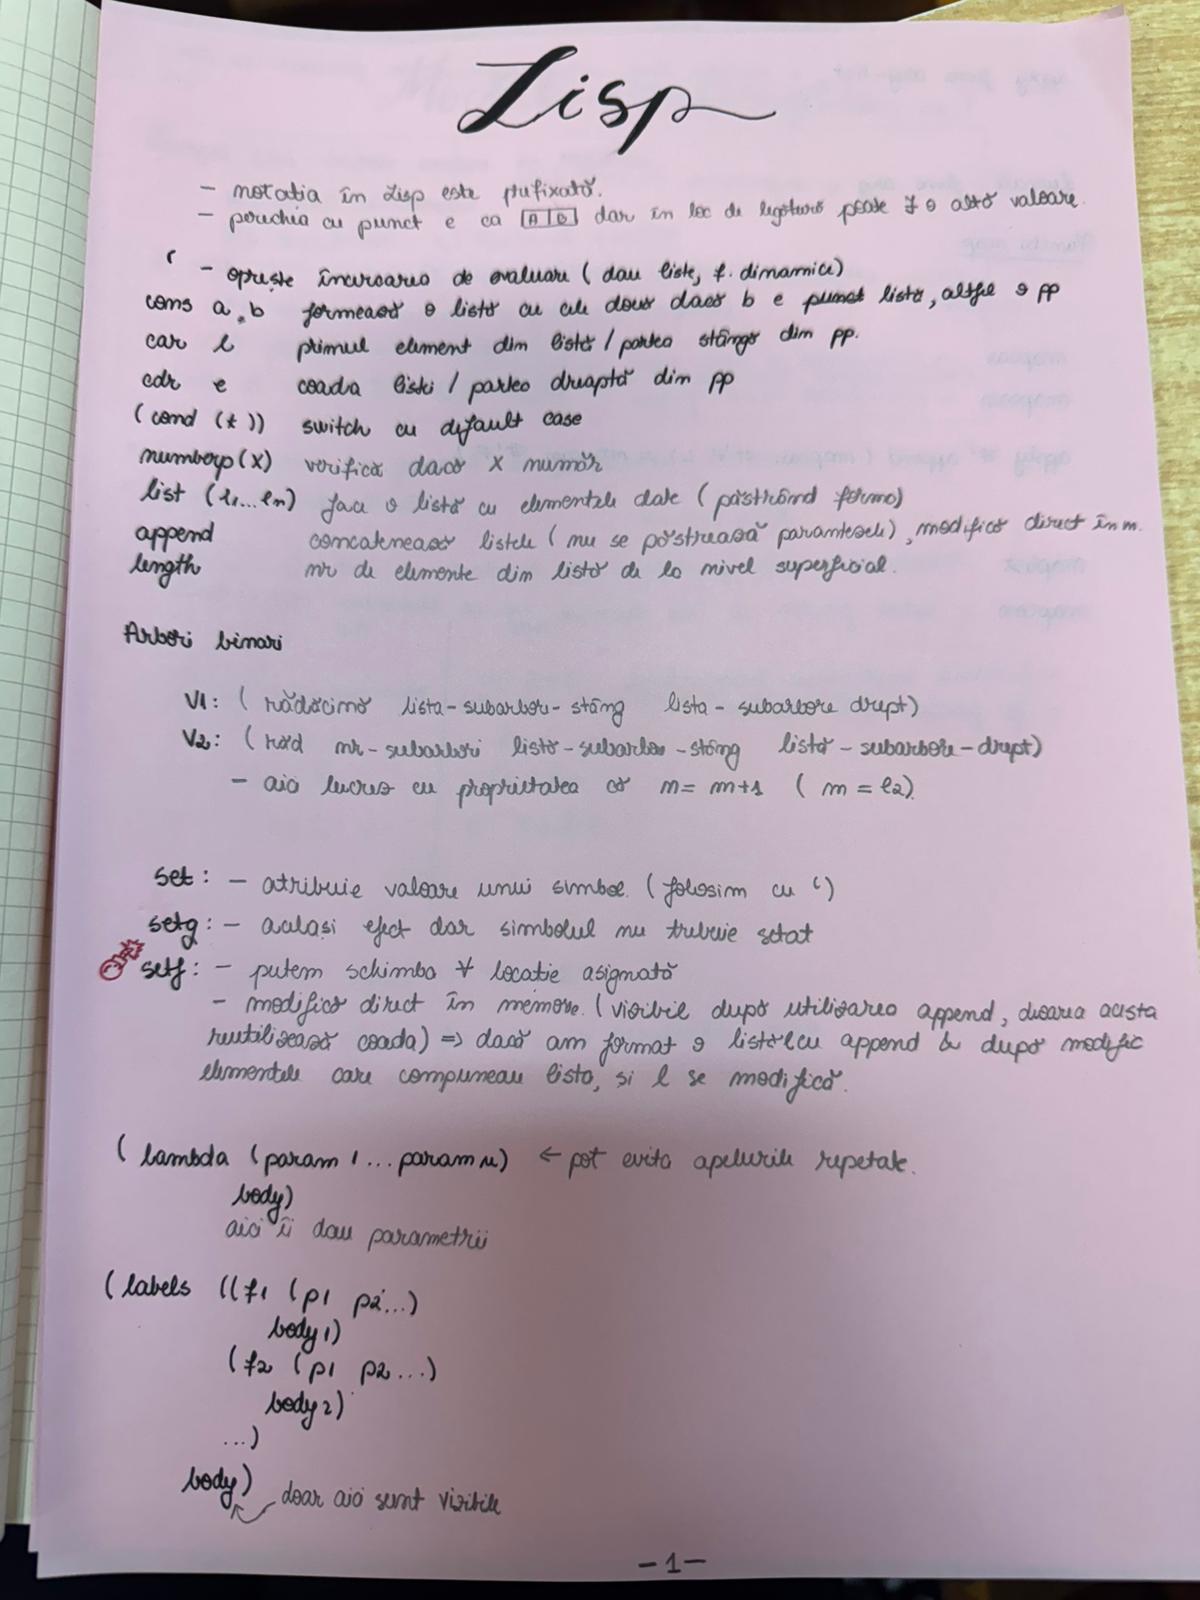 Lisp
- notatia în Lisp este prefixată.
- perechia cu punct e ca A|B dar în loc de legătură poate f o altă valoare.
' - oprește încercarea de evaluare (dau liste, f. dinamice)
cons a, b formează o listă cu cele două dacă b e punct listă, altfel o pp
car l primul element din listă / partea stângă din pp.
cdr e coada listei / partea dreaptă din pp
(cond (t )) switch cu default case
numberp(x) verifică dacă x număr
list (l1...ln) face o listă cu elementele date (păstrând forma)
append concatenează listele (nu se păstrează parantezele), modifică direct în m.
length nr de elemente din listă de la nivel superficial.
Arbori binari
V1: (rădăcină lista-subarbore-stâng lista-subarbore drept)
V2: (răd nr-subarbori listă-subarbore-stâng listă-subarbore-drept)
- aici lucrez cu proprietatea că n= m+1 (m = l2).
set: - atribuie valoare unui simbol. (folosim cu ')
setq: - același efect dar simbolul nu trebuie setat
setf: - putem schimba ∀ locatie asignată
- modifică direct în memorie. (vizibil după utilizarea append, deoarece acesta
reutilizează coada) => dacă am format o listă l cu append & după modific
elementele care compuneau lista, si l se modifică.
(lambda (param 1 ... param n) ← pot evita apelurile repetate.
body)
aici îi dau parametrii
(labels ((f1 (p1 p2...)
body1)
(f2 (p1 p2...)
body2)
...)
body)
doar aici sunt vizibile
-1-